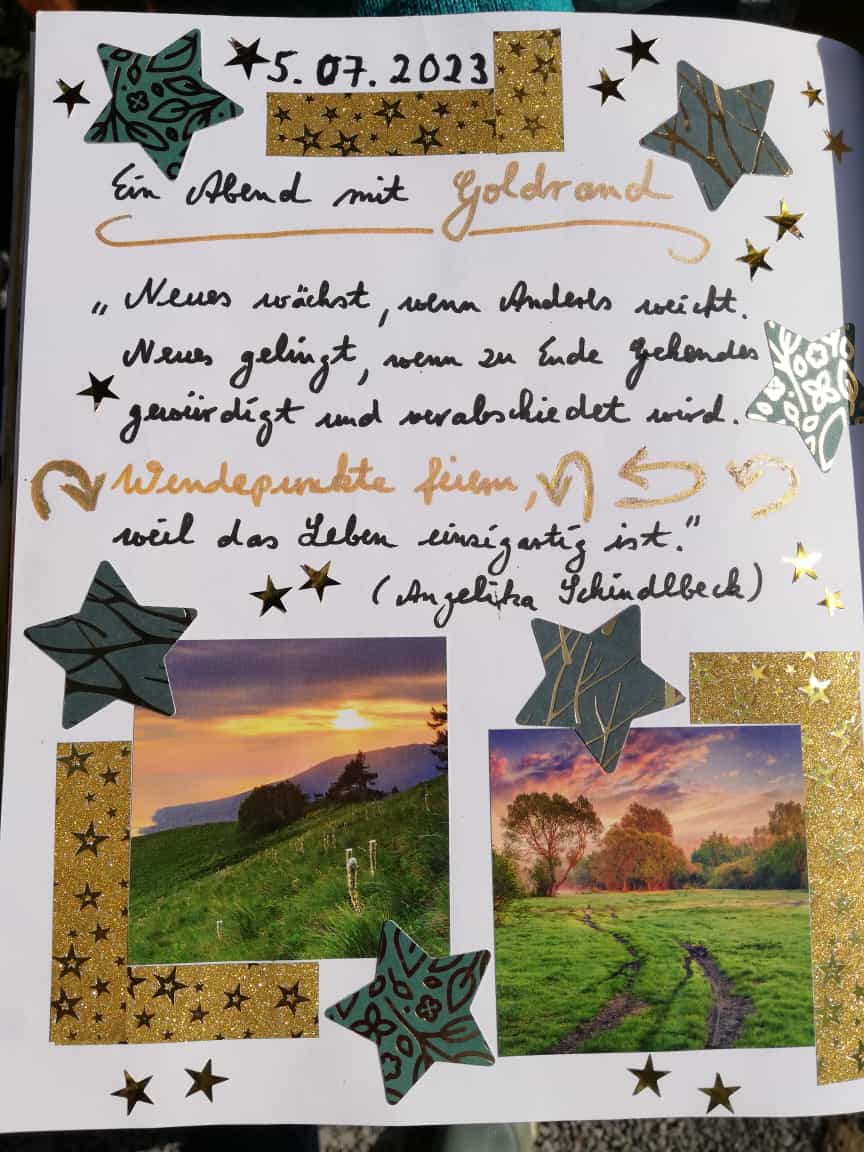 5.07.2023
Ein Abend mit Goldrand
„Neues wächst, wenn Anderes weicht.
Neues gelingt, wenn zu Ende Gehendes
gewürdigt und verabschiedet wird.
Wendepunkte feiern,
weil das Leben einzigartig ist."
(Angelika Schindlbeck)